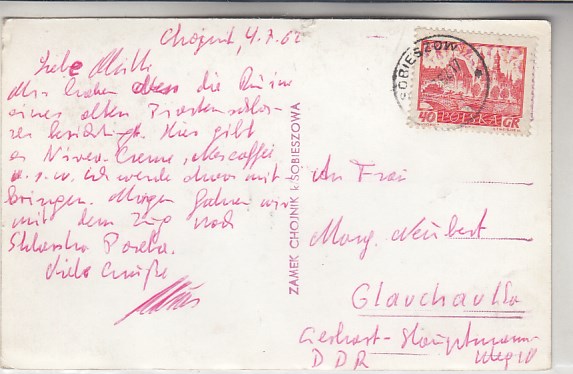 Chojnik, 4.7.62
Liebe
Wir haben eben die Ruine
eines alten Piastenschlos-
ses besichtigt. Hier gibt
es Nivea-Creme, Nescaffee
u.s.w. Ich werde etwas mit
bringen. Morgen fahren wir
mit dem Zug nach
Sklarska Poreba.
Viele Grüße
ZAMEK CHOJNIK k. SOBIESZOWA
SOBIESZÓW
40 POLSKA GR
An Frau
Marg. Neubert
Glauchau
Gerhart-Hauptmann
Weg
DDR